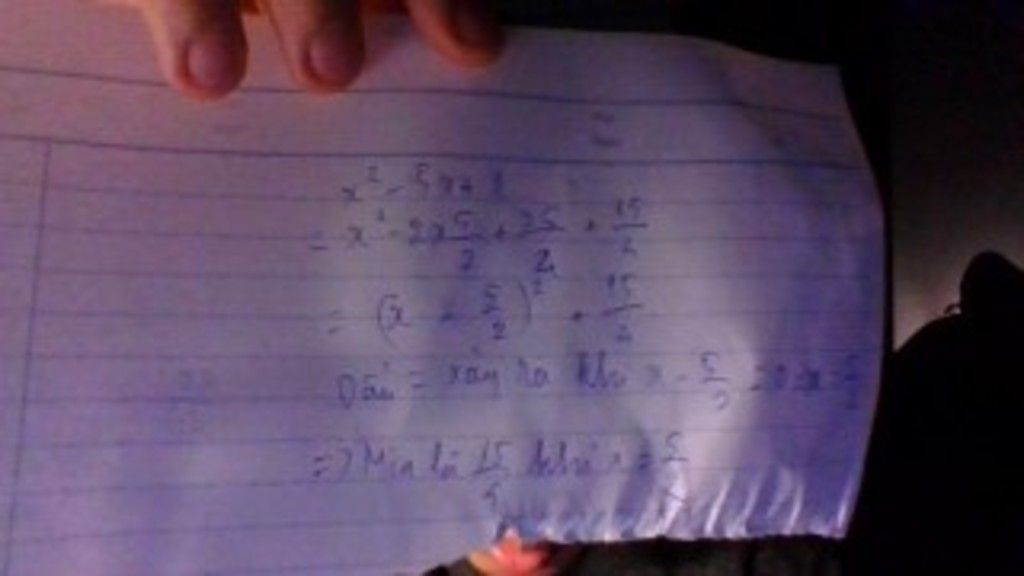 x² - 5x + 1
= x² - 2x 5/2 + 25/2 + 15/2
= (x - 5/2)² + 15/2
Dấu = xảy ra khi x - 5/2 = 0 x = 5/2
=> Min là 15/4 khi x = 5/2